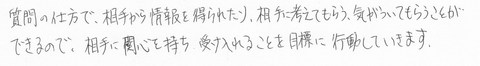 質問の仕方で、相手から情報を得られたり、相手に考えてもらう、気がついてもらうことが
できるので、相手に関心を持ち 受け入れることを目標に行動していきます。